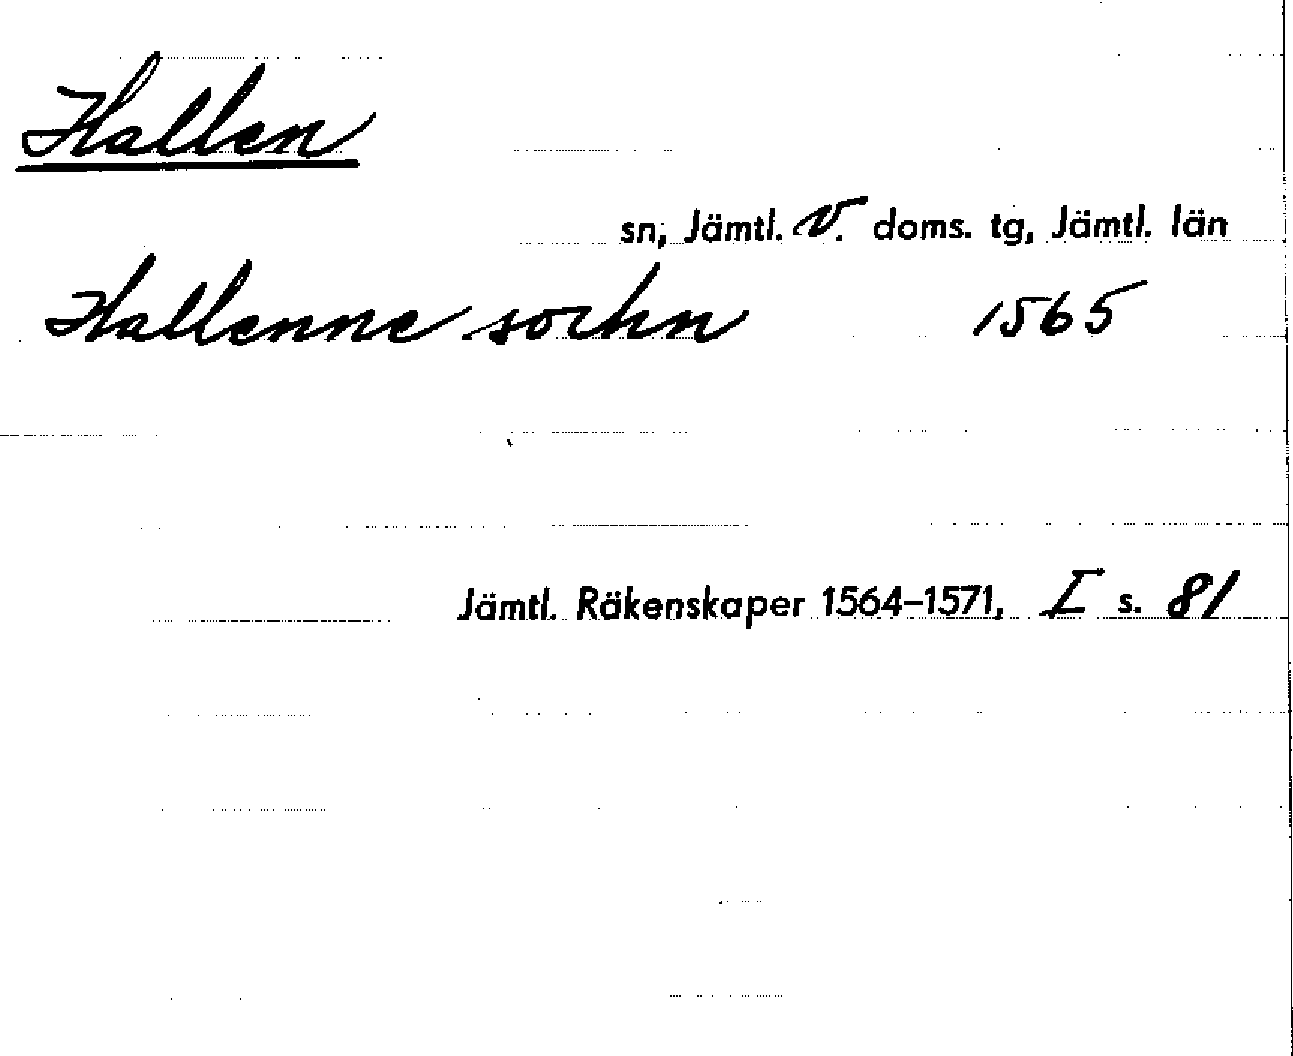 Hallen
sn, Jämtl. V. doms. tg, Jämtl. län
Hallenne sochn 1565
Jämtl. Räkenskaper 1564–1571, I s. 81